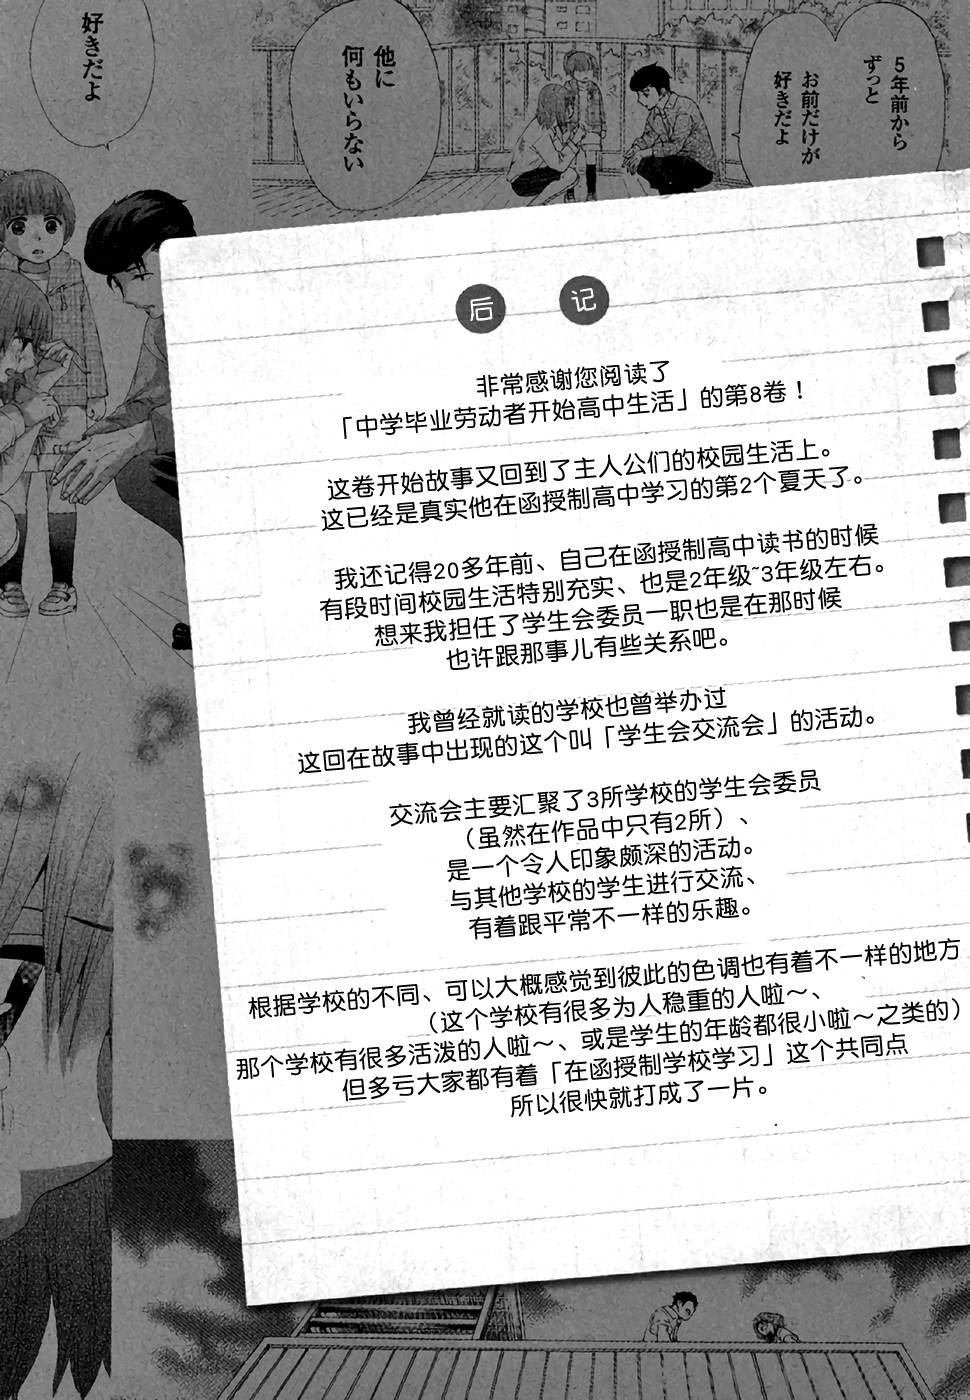 5年前から
ずっと
お前だけが
好きだよ
他に
何もいらない
好きだよ
后记
非常感谢您阅读了
「中学毕业劳动者开始高中生活」的第8卷！
这卷开始故事又回到了主人公们的校园生活上。
这已经是真实他在函授制高中学习的第2个夏天了。
我还记得20多年前、自己在函授制高中读书的时候
有段时间校园生活特别充实、也是2年级~3年级左右。
想来我担任了学生会委员一职也是在那时候
也许跟那事儿有些关系吧。
我曾经就读的学校也曾举办过
这回在故事中出现的这个叫「学生会交流会」的活动。
交流会主要汇聚了3所学校的学生会委员
（虽然在作品中只有2所）、
是一个令人印象颇深的活动。
与其他学校的学生进行交流、
有着跟平常不一样的乐趣。
根据学校的不同、可以大概感觉到彼此的色调也有着不一样的地方
（这个学校有很多为人稳重的人啦～、
那个学校有很多活泼的人啦～、或是学生的年龄都很小啦～之类的）
但多亏大家都有着「在函授制学校学习」这个共同点
所以很快就打成了一片。